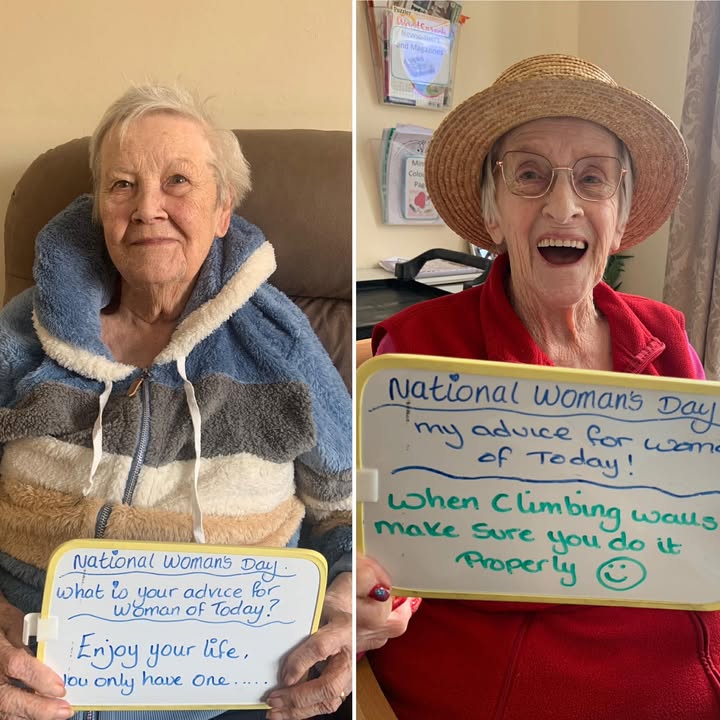 National Woman's Day.
What is your advice for
Woman of Today?
Enjoy your life,
You only have one.....
Newspapers
and Magazines
National Woman's Day
my advice for
of Today!
When Climbing walls
make sure you do it
Properly